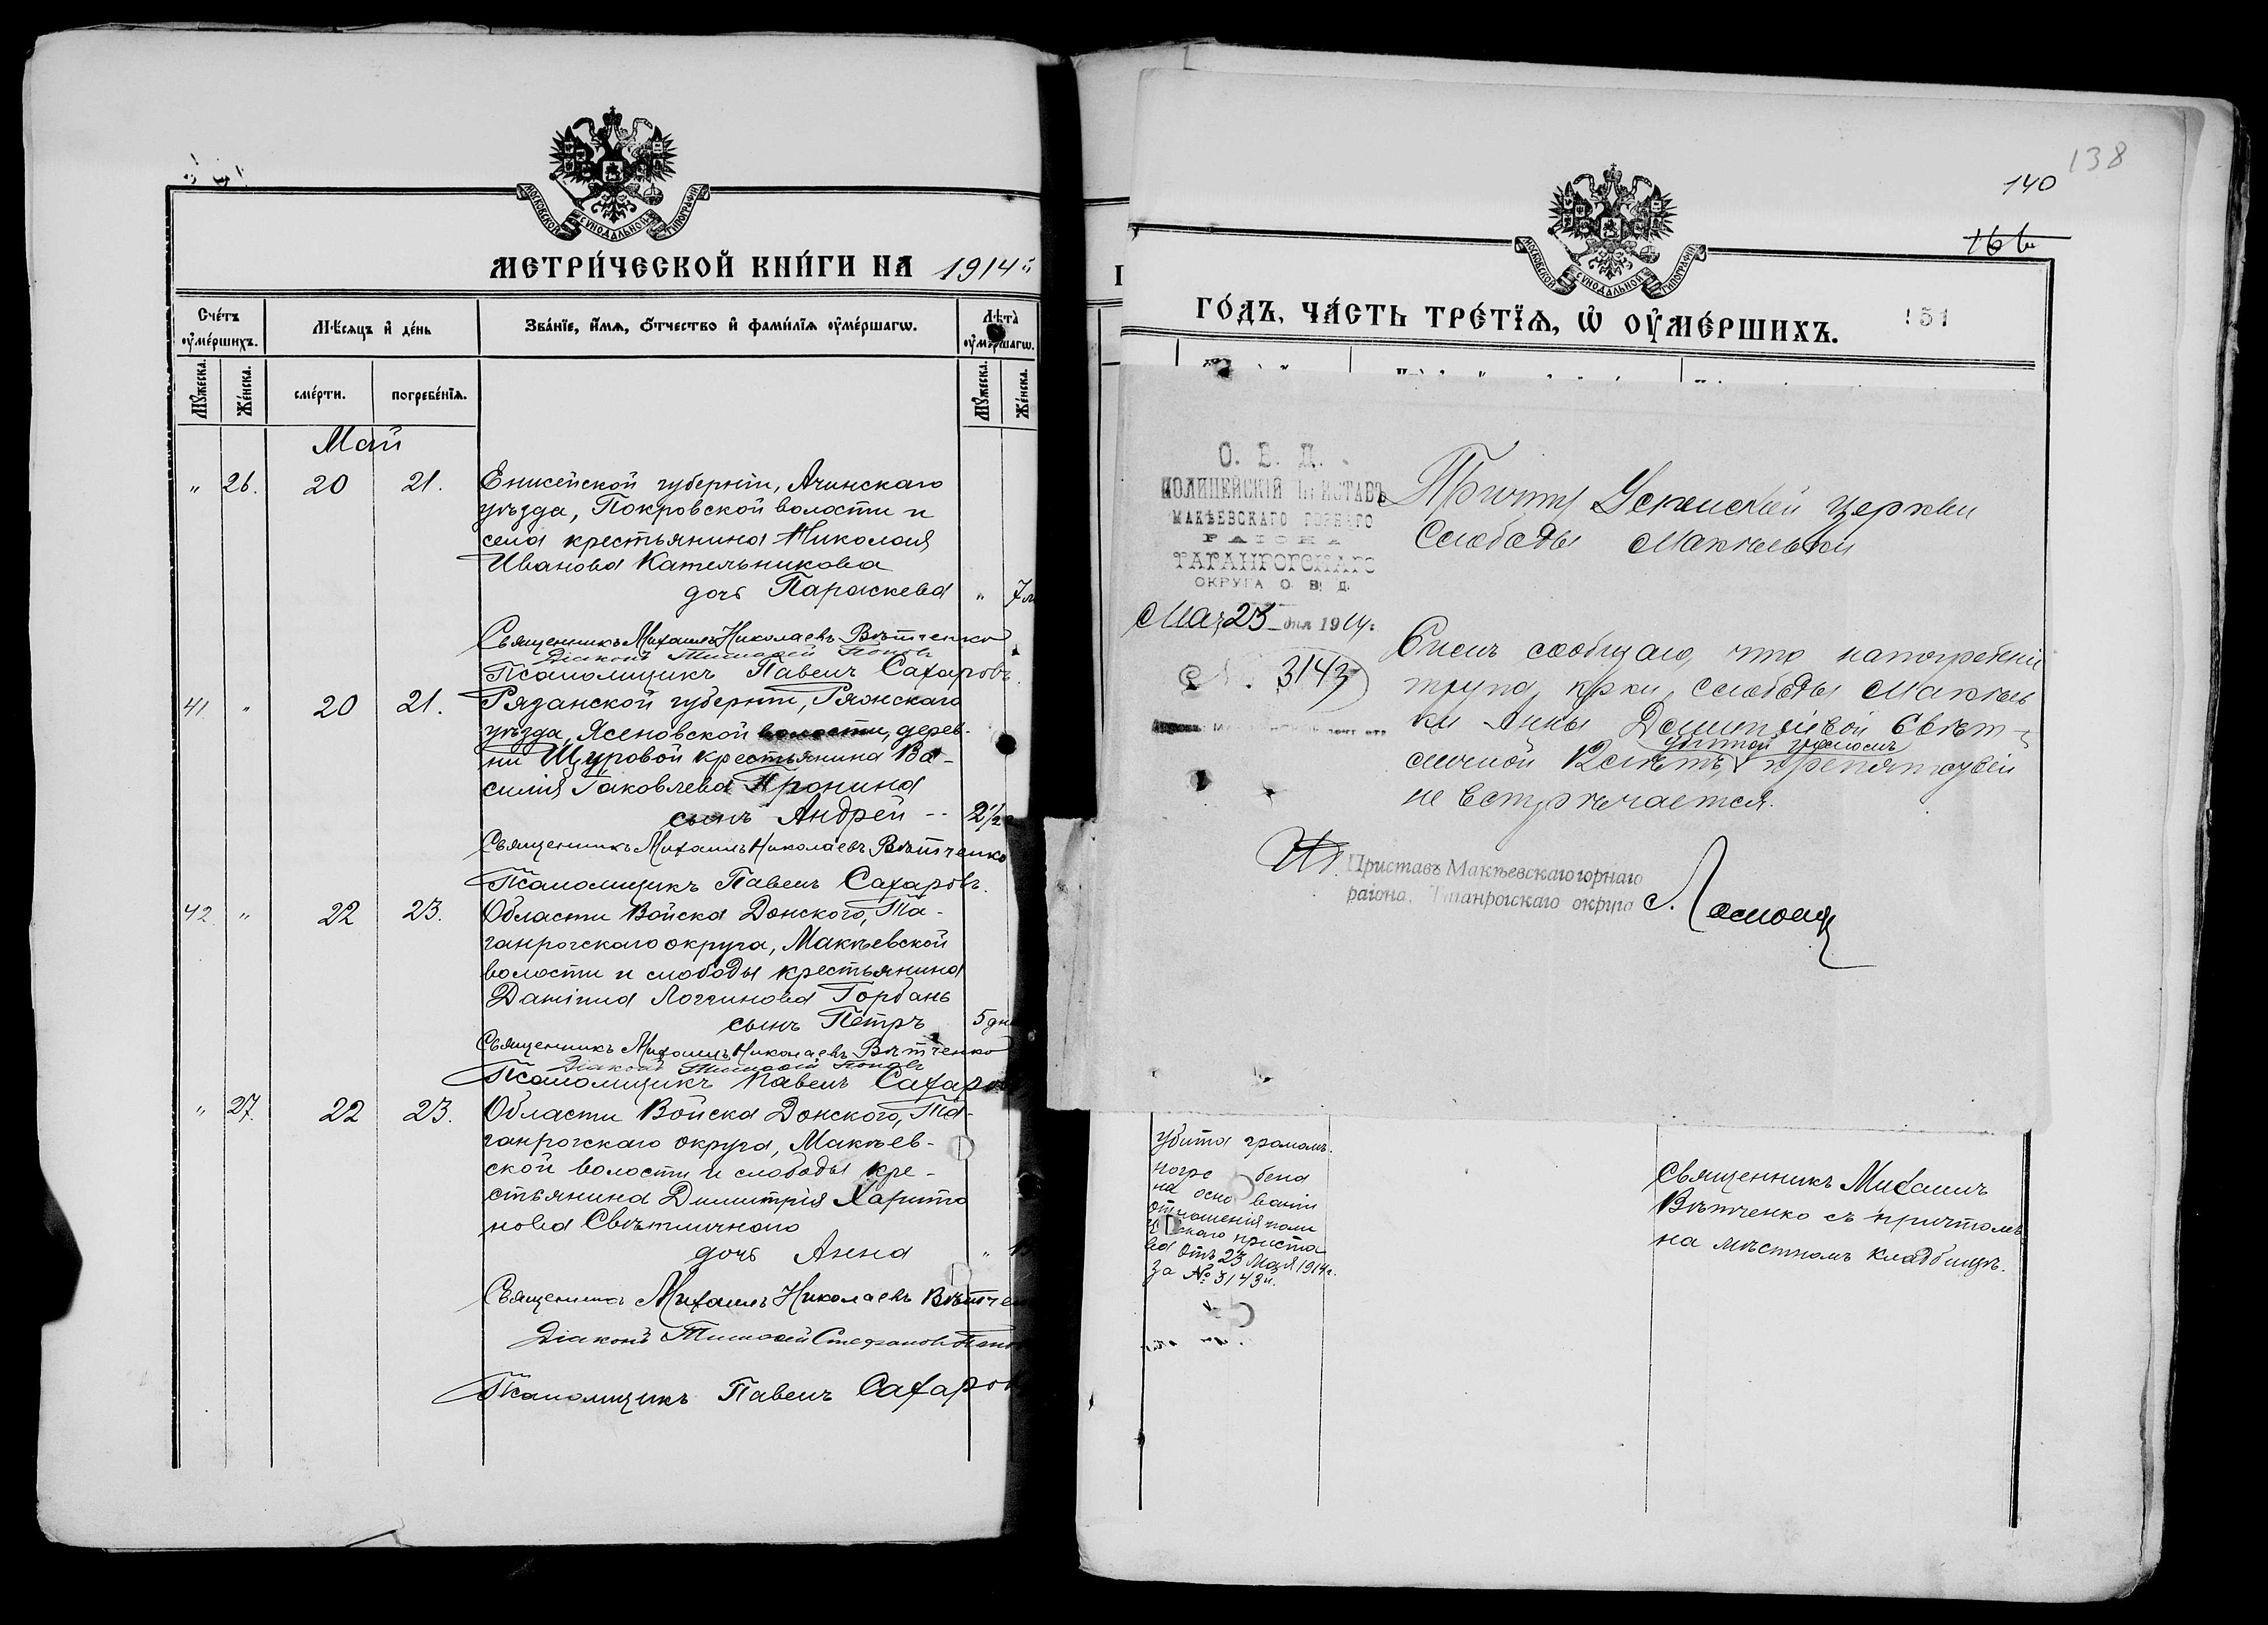 МОСКОВСКОЙ СѴНОДАЛЬНОЙ ТИПОГРАФІИ
МЕТРИ́ЧЕСКОЙ КНИ́ГИ НА 1914й
Сче́тъ ᲂу҆ме́ршихъ.
Мѣ́сяцъ и҆ де́нь
Зва́нїе, и҆́мѧ, ѻ҆́тчество и҆ фами́лїѧ ᲂу҆ме́ршагѡ.
Лѣта̀ ᲂу҆ме́ршагѡ.
Мꙋ́жеска.
Же́нска.
сме́рти.
погребе́нїѧ.
Мꙋ́жеска.
Же́нска.
Май
" 26. 20 21. Енисейской губерніи, Ачинскаго
уѣзда, Покровской волости и
села крестьянина Николая
Иванова Кательникова
дочь Параскева " 7 м
Священникъ Михаилъ Николаевъ Вѣтченко
Діаконъ Тимофей Поповъ
Псаломщикъ Павелъ Сахаровъ.
41 " 20 21. Рязанской губерніи, Ряжскаго
уѣзда, Ясеновской волости, дерев-
ни Щуровой крестьянина Ва-
силія Іаковлева Пронина
сынъ Андрей -- 2 1/2
Священникъ Михаилъ Николаевъ Вѣтченко
Псаломщикъ Павелъ Сахаровъ.
42. " 22 23. Области Войска Донского, Та-
ганрогскаго округа, Макѣевской
волости и слободы крестьянина
Даніила Логгинова Горбань
сынъ Петръ 5 дн
Священникъ Михаилъ Николаевъ Вѣтченко
Діаконъ Тимофей Поповъ
Псаломщикъ Павелъ Сахаров
" 27. 22 23. Области Войска Донского, Та-
ганрогскаго округа, Макѣев-
ской волости и слободы кре-
стьянина Димитрія Харито
нова Свѣтличнаго
дочь Анна "
Священникъ Михаилъ Николаевъ Вѣтчен
Діаконъ Тимофей Стефановъ Попо
Псаломщикъ Павелъ Сахаров
138
140
166
МОСКОВСКОЙ СѴНОДАЛЬНОЙ ТИПОГРАФІИ
ГО́ДЪ, ЧА́СТЬ ТРЕ́ТЇѦ, Ѡ҆ ОУ҆МЕ́РШИХЪ.
151
О. В. Д.
ПОЛИЦЕЙСКІЙ ПРИСТАВЪ
МАКѢЕВСКАГО ГОРНАГО
РАІОНА
ТАГАНРОГСКАГО
ОКРУГА О. В. Д.
Мая 23 дня 1914 г.
№. 3143
Причту Успенской церкви
Слободы Макѣевки
Симъ сообщаю, что къ погребенію
трупа кр-ки слободы Макѣев
ки Анны Демитріевой Свѣт-
личной 12 лѣтъ, убитой громомъ препятствій
не встрѣчается.
И. Приставъ Макѣевскаго горнаго
раіона, Таганрогскаго округа
убита громомъ.
погре бена
на осно ваніи
отношенія поли
скаго приста
ва отъ 23 Мая 1914 г.
за № 3143 й.
Священникъ Михаилъ
Вѣтченко съ причтомъ
на мѣстномъ кладбищѣ.